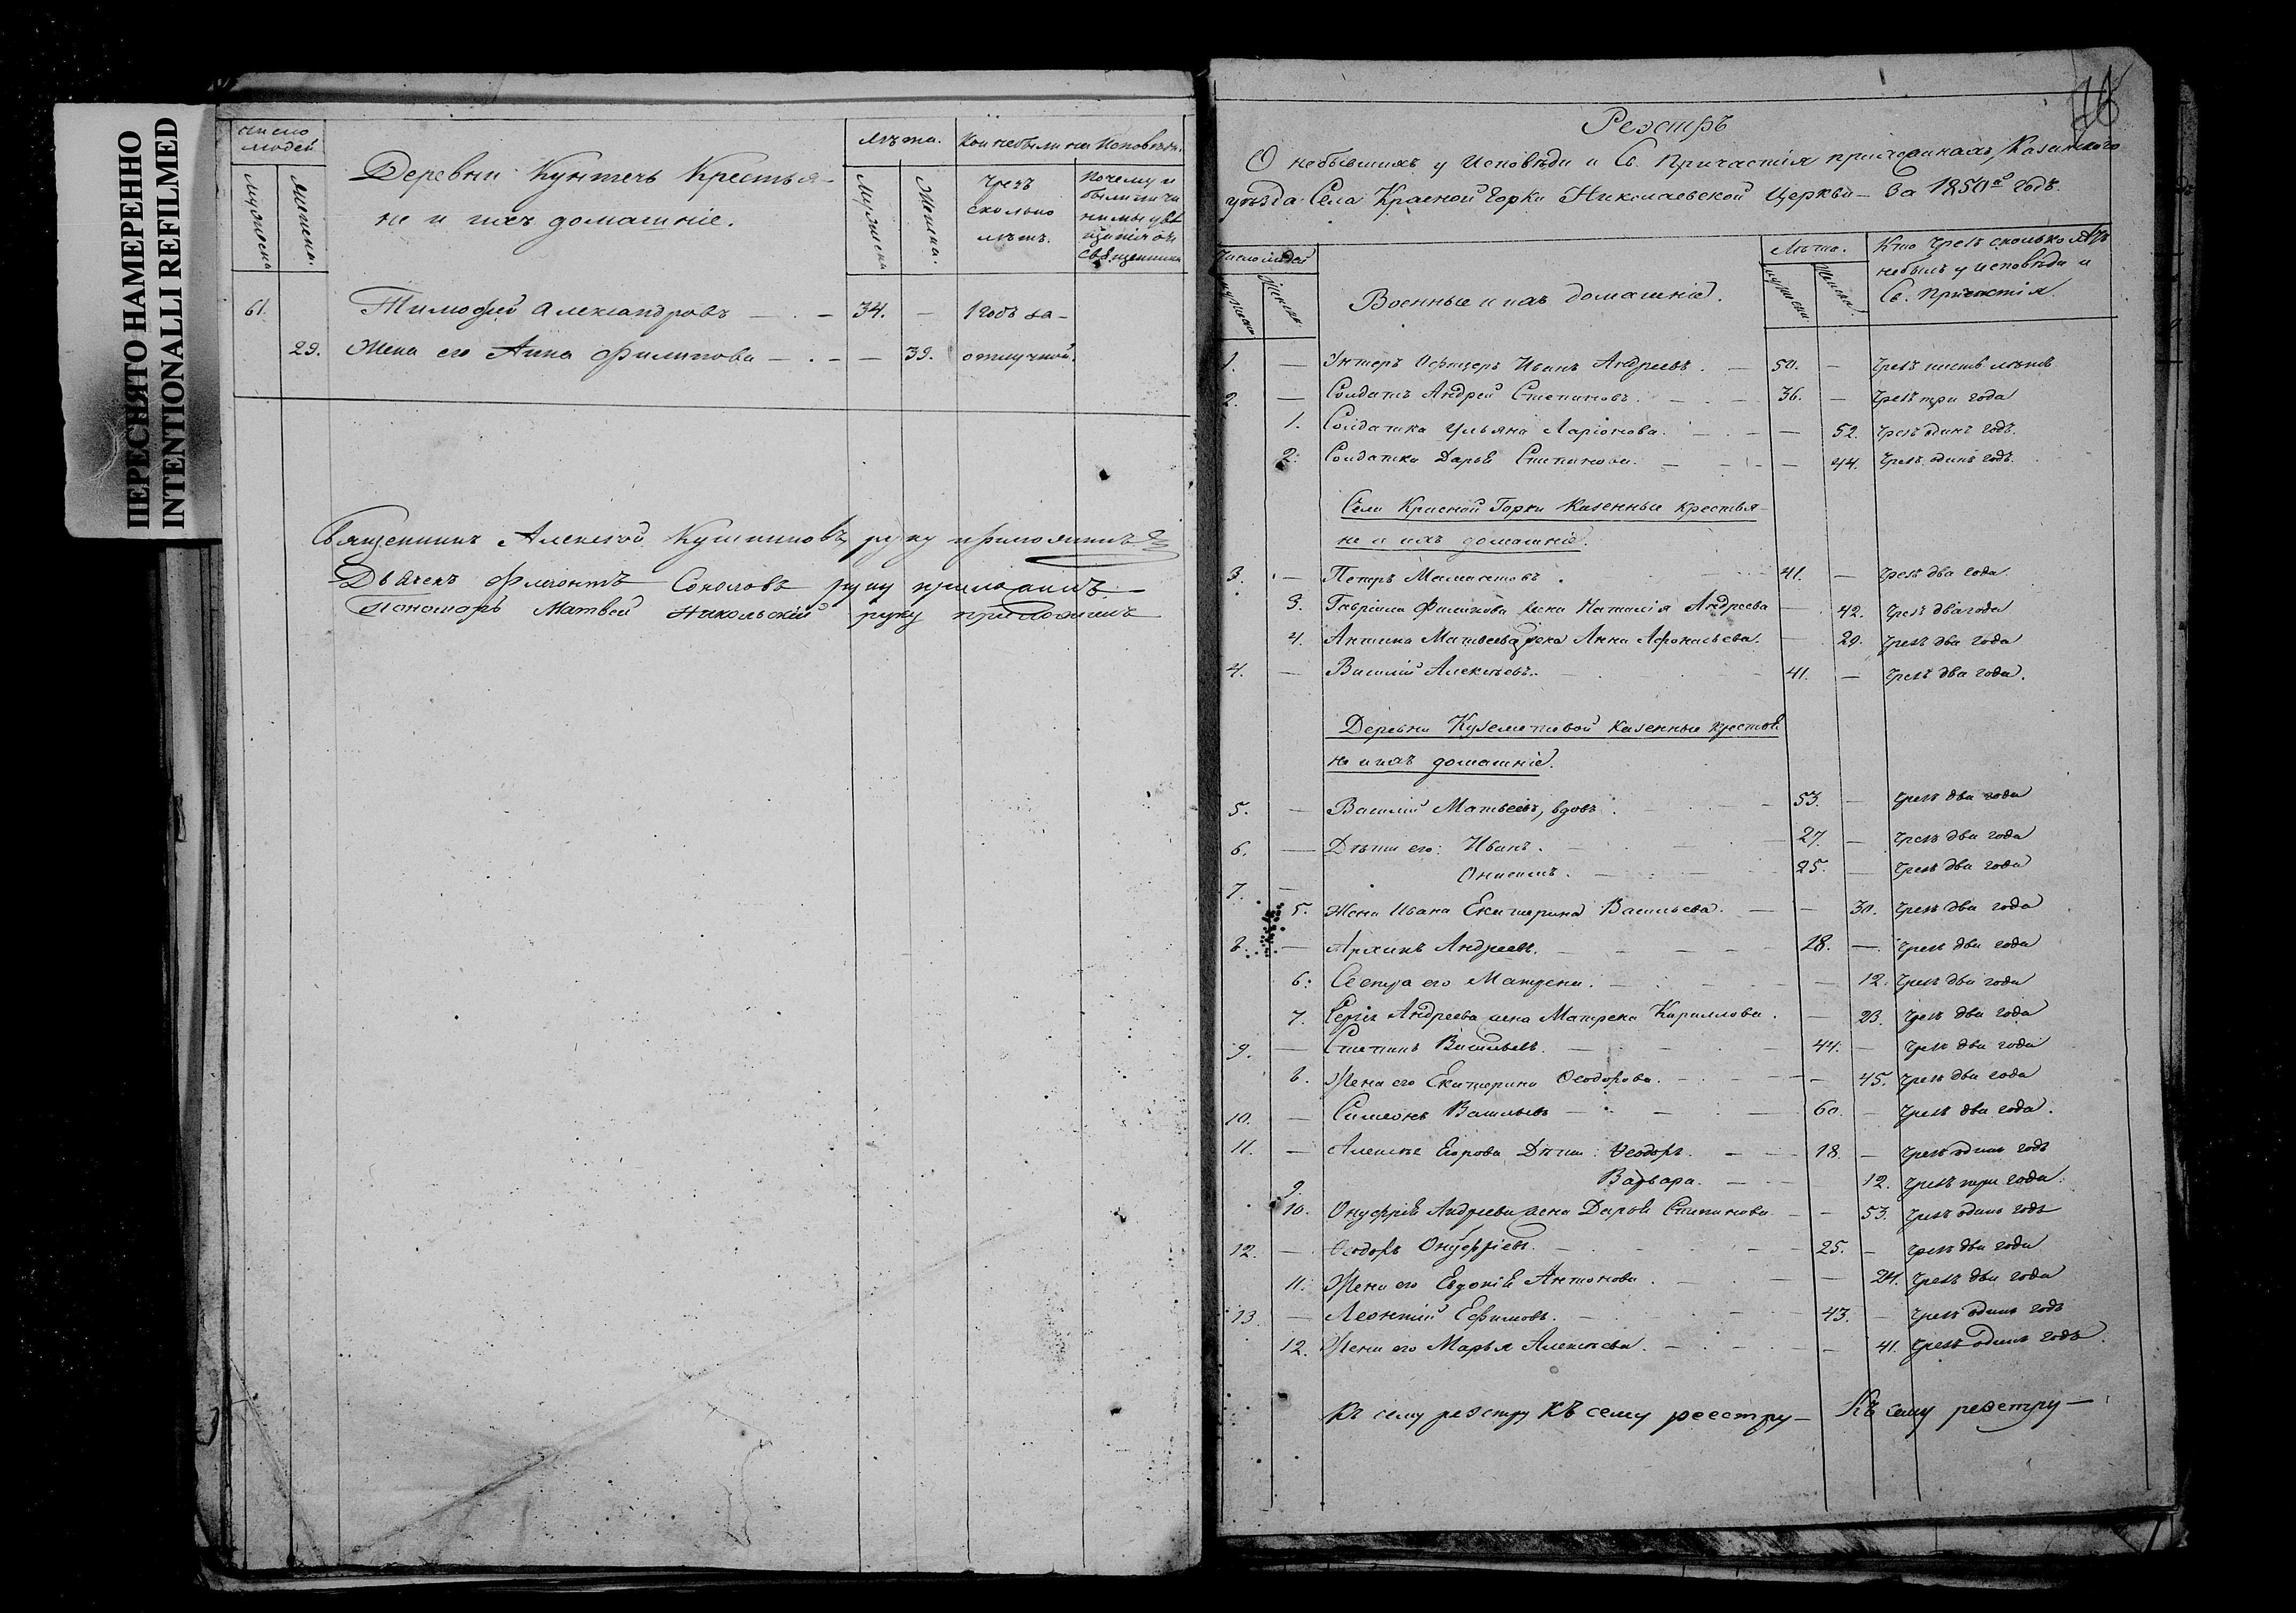 ПЕРЕСНЯТО НАМЕРЕННО
INTENTIONALLI REFILMED
число людей
Деревни Кунтечь Крестья-
не и ихъ домашніе.
мужеска
женска.
Лѣта.
Мужеска
Женска.
Кои небыли на Исповѣди.
Чрезъ
сколько
лѣтъ.
Почему и
были ли чи
нимы увѣ
щанія отъ
священника
61. Тимофей Александровъ — . — 34. — 1 годъ за-
29. Жена его Анна Филипова — . — — 39. отлучкой.
Священникъ Алексѣй руку приложилъ
Дьячекъ Соколовъ руку приложилъ
Пономарь Матвей Никольскій руку приложилъ
Реэстръ
О небывшихъ у Исповѣди и Св. Причастія Казанского
уѣзда Села Красной Горки Николаевской Церкви — За 1850й годъ.
Число людей
мужеска
женска
Военные и ихъ домашніе.
Лѣта.
мужеска
женска.
Кто Чрезъ сколько лѣтъ
небылъ у исповѣди и
Св. Причастія.
1. — Унтеръ Офицеръ Иванъ Андреевъ. — 50. — Чрезъ шесть лѣтъ
2. — Солдатъ Андрей Степановъ. — 36. — Чрезъ три года
1. Солдатка Ульяна Ларіонова. — — 52. Чрезъ одинъ годъ.
2. Солдатка Дарья Степанова. — — 44. Чрезъ одинъ годъ.
Села Красной Горки Казенные крестья-
не и ихъ домашніе.
3. — Петръ 41. — Чрезъ два года.
3. Гавріила Филипова жена Наталія Андреева — 42. Чрезъ два года
4. Антипа Матвеева жена Анна Афонасьева. — 29. Чрезъ два года
4. — Василій Алексѣевъ. — 41. — Чрезъ два года.
Деревни Куземетевой казенные крестья
не и ихъ домашніе.
5. — Василій Матвеевъ, вдовъ. — 53. — Чрезъ два года
6. — Дѣти его: Иванъ. — 27. — Чрезъ два года
7. — Онисимъ. — 25. — Чрезъ два года
5. Жена Ивана Екатерина Васильева. — — 30. Чрезъ два года
8. — Архипъ Андреевъ. — 18. — Чрезъ два года
6. Сестра его Матрена. — — 12. Чрезъ два года
7. Сергея Андреева жена Матрена Кирилова. — 23. Чрезъ два года
9. — Степанъ Васильевъ. — 44. — Чрезъ два года
8. Жена его Екатерина Ѳеодорова. — — 45. Чрезъ два года
10. — Симеонъ Васильевъ — 60. — Чрезъ два года.
11. — Алексѣя Егорова Дѣти: Ѳеодоръ. — 18. — Чрезъ одинъ годъ
9. Варвара. — 12. Чрезъ три года.
10. Онуфрія Андреева жена Дарья Степанова — — 53. Чрезъ одинъ годъ
12. — Ѳеодоръ Онуфріевъ. — 25. — Чрезъ два года
11. Жена его Евдокія Антонова. — — 24. Чрезъ два года
13. — Леонтій Ефимовъ. — 43. — Чрезъ одинъ годъ
12. Жена его Марья Алексѣева. — — 41. Чрезъ одинъ годъ.
Къ сему реэстру Къ сему реестру — Къ сему реэстру —